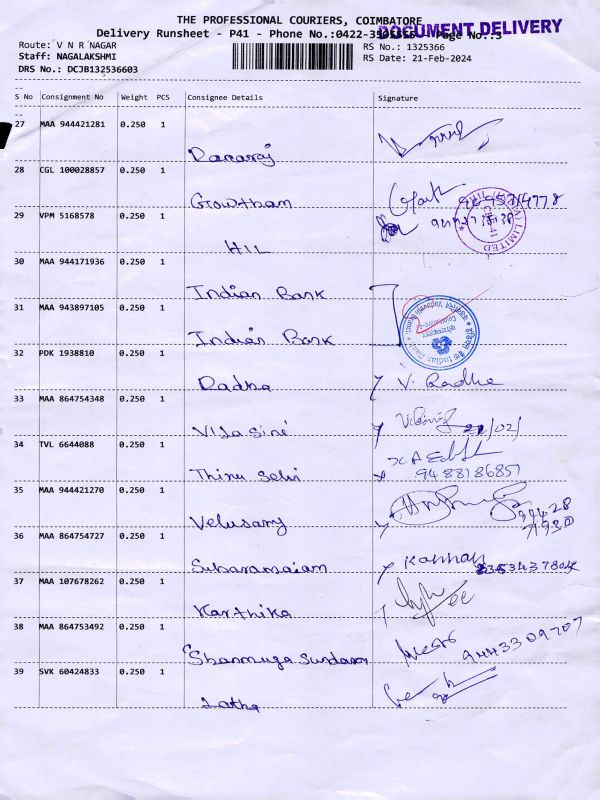 THE PROFESSIONAL COURIERS, COIMBATORE
DOCUMENT DELIVERY
Delivery Runsheet - P41 - Phone No.:0422- Page No.:3
Route: V N R NAGAR
RS No.: 1325366
Staff: NAGALAKSHMI
RS Date: 21-Feb-2024
DRS No.: DCJB132536603
S No Consignment No Weight PCS Consignee Details Signature
27 MAA 944421281 0.250 1
Danaraj
28 CGL 100028857 0.250 1
Growtham
29 VPM 5168578 0.250 1
HIL
30 MAA 944171936 0.250 1
Indian Bank
31 MAA 943897105 0.250 1
Indian Bank
32 PDK 1938810 0.250 1
Radha V. Radha
33 MAA 864754348 0.250 1
Vilasini 22/02/
34 TVL 6644088 0.250 1
Thiru Selvi 9488186857
35 MAA 944421270 0.250 1
Velusamy 94428
71930
36 MAA 864754727 0.250 1
Subaramaiam Kannan
37 MAA 107678262 0.250 1
Karthika
38 MAA 864753492 0.250 1
Shanmuga Sundaram 9443309707
39 SVK 60424833 0.250 1
Latha